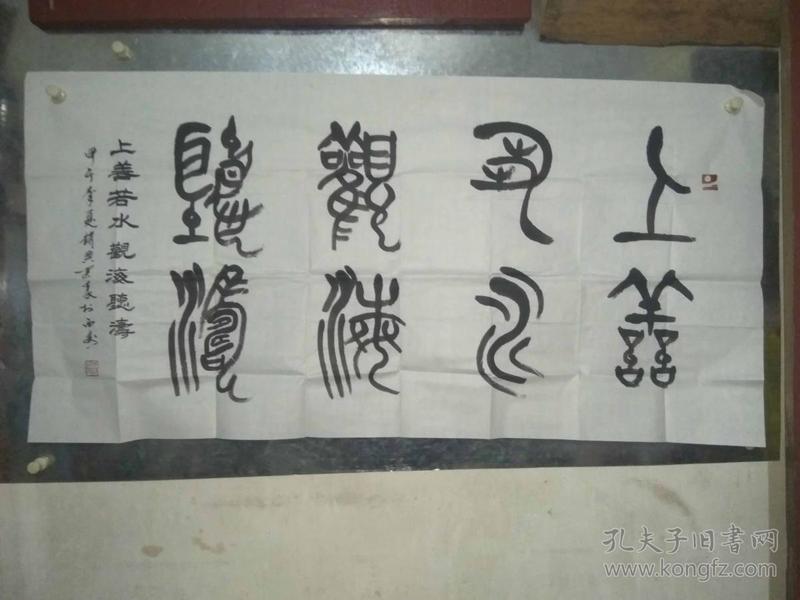 上善
若水
觀海
聽濤
上善若水 觀海聽濤
甲午
孔夫子旧书网
www.kongfz.com